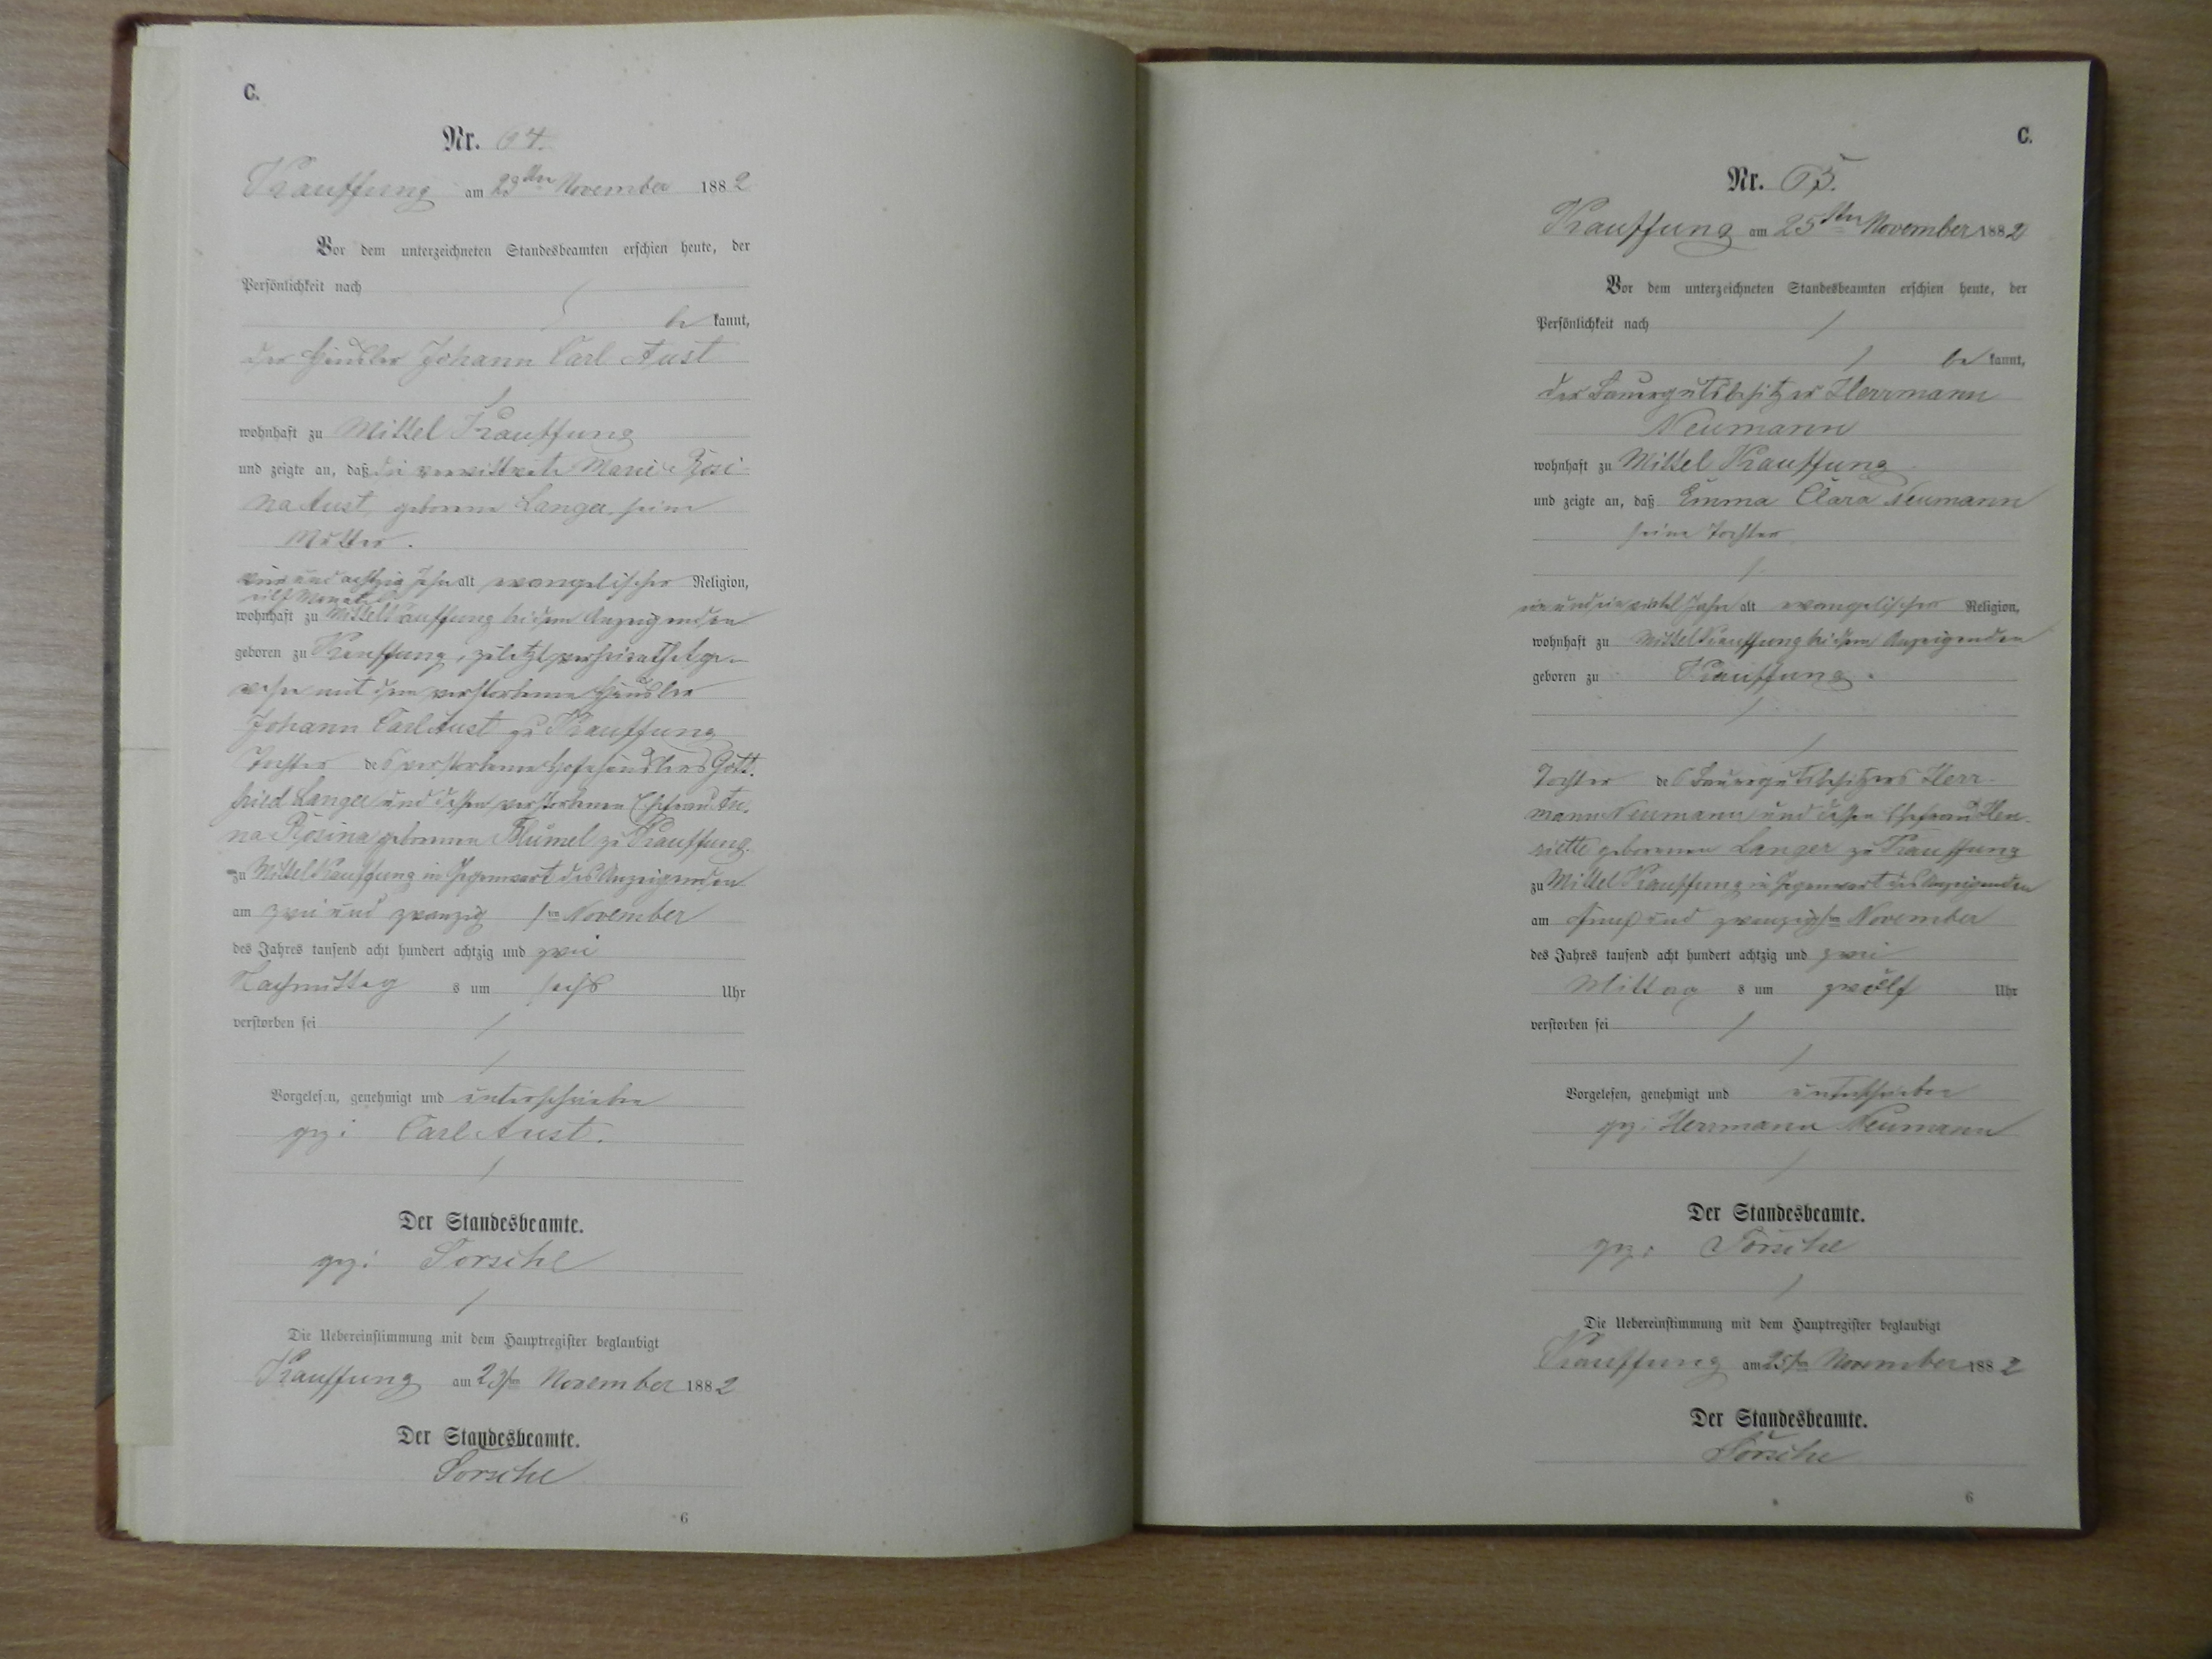 C.
Nr. 64.
Kauffung am 23ten November 1882
Vor dem unterzeichneten Standesbeamten erschien heute, der
Persönlichkeit nach
be kannt,
der Häusler Johann Carl Aust
wohnhaft zu Mittel Kauffung
und zeigte an, daß die verwittwete Marie Rosi-
na Aust, geborene Langer, seine
Mutter.
und achtzig Jahr alt evangelischer Religion,
elf Monate
wohnhaft zu Mittel Kauffung bei dem Anzeigenden
geboren zu Kauffung, zuletzt verheirathet ge-
wesen mit dem verstorbenen Häusler
Johann Carl Aust zu Kauffung
Tochter des verstorbenen Hofehäuslers Gott-
fried Langer und dessen verstorbenen Ehefrau An-
na Rosina geborenen Blümel zu Kauffung.
zu Mittel Kauffung in Gegenwart des Anzeigenden
am zwei und zwanzig sten November
des Jahres tausend acht hundert achtzig und zwei
Nachmittag s um sechs Uhr
verstorben sei
Vorgelesen, genehmigt und unterschrieben
gez: Carl Aust.
Der Standesbeamte.
gez:
Die Uebereinstimmung mit dem Hauptregister beglaubigt
Kauffung am 23sten November 1882
Der Standesbeamte.
6
C.
Nr. 65.
Kauffung am 25ten November 1882
Vor dem unterzeichneten Standesbeamten erschien heute, der
Persönlichkeit nach
be kannt,
der Bauergutsbesitzer Herrmann
Neumann
wohnhaft zu Mittel Kauffung
und zeigte an, daß Emma Clara Neumann
seine Tochter
ein und ein viertel Jahr alt evangelischer Religion,
wohnhaft zu Mittel Kauffung bei dem Anzeigenden
geboren zu Kauffung.
Tochter des Bauergutsbesitzers Herr-
mann Neumann und dessen Ehefrau Hen-
riette geborenen Langer zu Kauffung
zu Mittel Kauffung in Gegenwart des Anzeigenden
am fünf und zwanzig sten November
des Jahres tausend acht hundert achtzig und zwei
Mittag s um zwölf Uhr
verstorben sei
Vorgelesen, genehmigt und unterschrieben
gez: Herrmann Neumann
Der Standesbeamte.
gez:
Die Uebereinstimmung mit dem Hauptregister beglaubigt
Kauffung am 25sten November 1882
Der Standesbeamte.
6